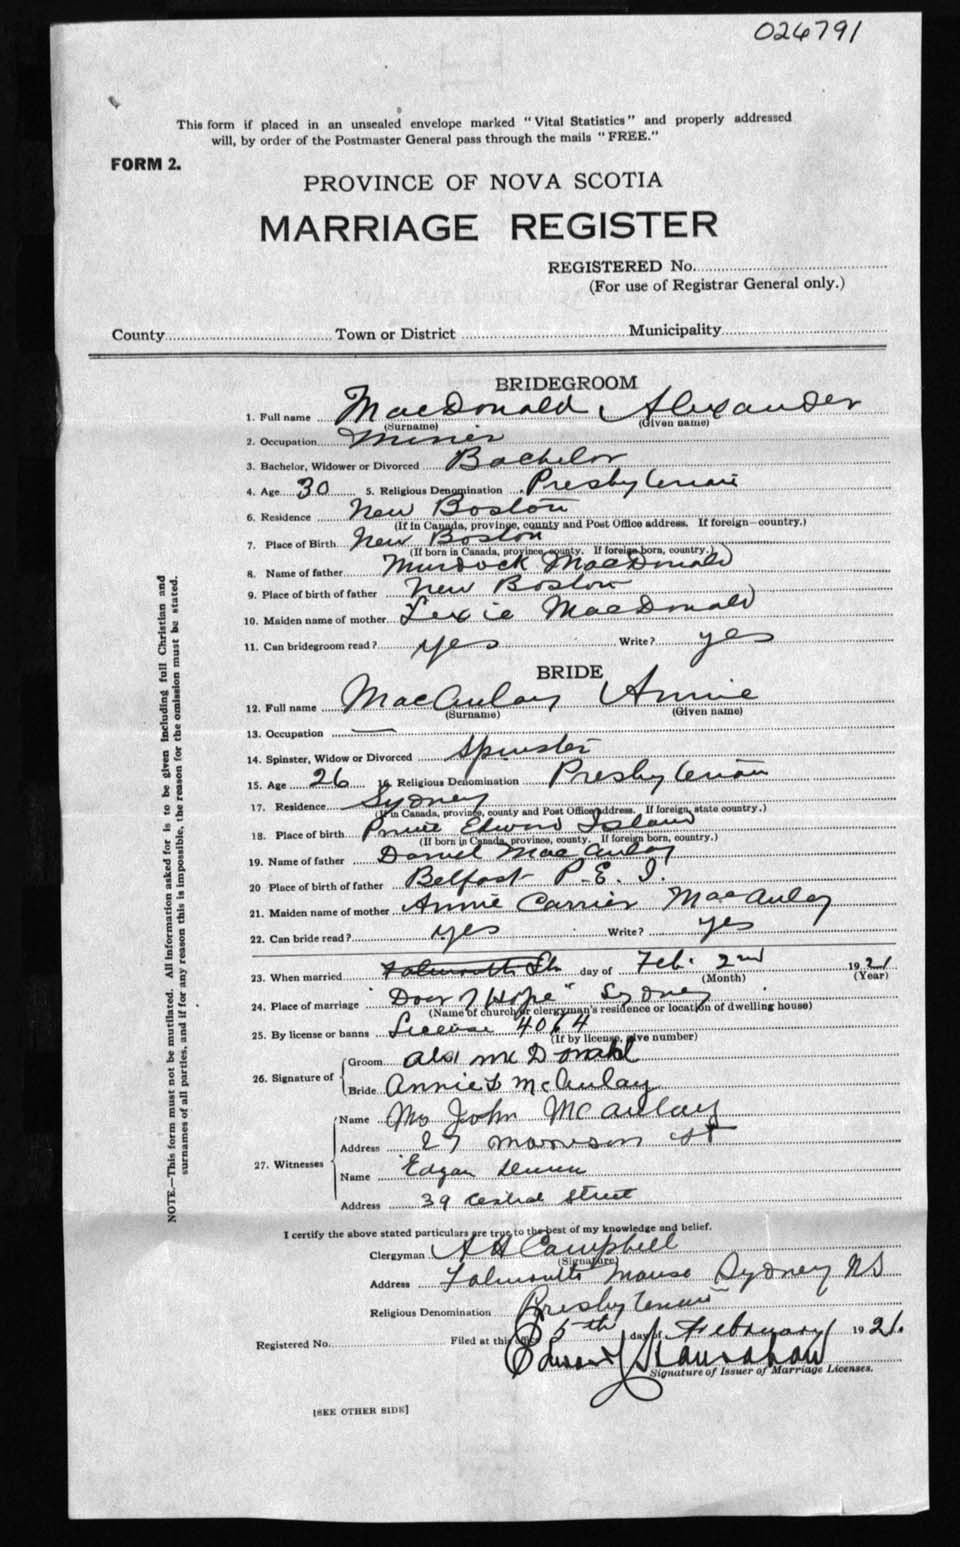 024791
This form if placed in an unsealed envelope marked "Vital Statistics" and properly addressed
will, by order of the Postmaster General pass through the mails "FREE."
FORM 2.
PROVINCE OF NOVA SCOTIA
MARRIAGE REGISTER
REGISTERED No.
(For use of Registrar General only.)
County Town or District Municipality
BRIDEGROOM
1. Full name MacDonald Alexander
(Surname) (Given name)
2. Occupation Miner
3. Bachelor, Widower or Divorced Bachelor
4. Age 30 5. Religious Denomination Presbyterian
6. Residence New Boston
(If in Canada, province, county and Post Office address. If foreign—country.)
7. Place of Birth New Boston
(If born in Canada, province, county. If foreign born, country.)
8. Name of father Murdock MacDonald
9. Place of birth of father New Boston
10. Maiden name of mother Lexie MacDonald
11. Can bridegroom read? yes Write? yes
BRIDE
12. Full name MacAulay Annie
(Surname) (Given name)
13. Occupation —
14. Spinster, Widow or Divorced Spinster
15. Age 26 16. Religious Denomination Presbyterian
17. Residence Sydney
(If in Canada, province, county and Post Office address. If foreign, state country.)
18. Place of birth Prince Edward Island
(If born in Canada, province, county. If foreign born, country.)
19. Name of father Daniel MacAulay
20 Place of birth of father Belfast P.E.I.
21. Maiden name of mother Annie Carrier MacAulay
22. Can bride read? yes Write? yes
23. When married Falmouth St day of Feb. 2nd 1921
(Month) (Year)
24. Place of marriage "Door of Hope" Sydney
(Name of church or clergyman's residence or location of dwelling house)
25. By license or banns License 4064
(If by license, give number)
26. Signature of Groom Alex McDonald
Bride Annie McAulay
27. Witnesses Name John McAulay
Address 27 Morrison St
Name Edgar
Address 39 Central Street
I certify the above stated particulars are true to the best of my knowledge and belief.
Clergyman A H Campbell
(Signature)
Address Falmouth Manse Sydney NS
Religious Denomination Presbyterian
Registered No. Filed at this office 5th day of February 1921.
Edward
Signature of Issuer of Marriage Licenses.
[SEE OTHER SIDE]
NOTE.—This form must not be mutilated. All information asked for is to be given including full Christian and
surnames of all parties, and if for any reason this is impossible, the reason for the omission must be stated.